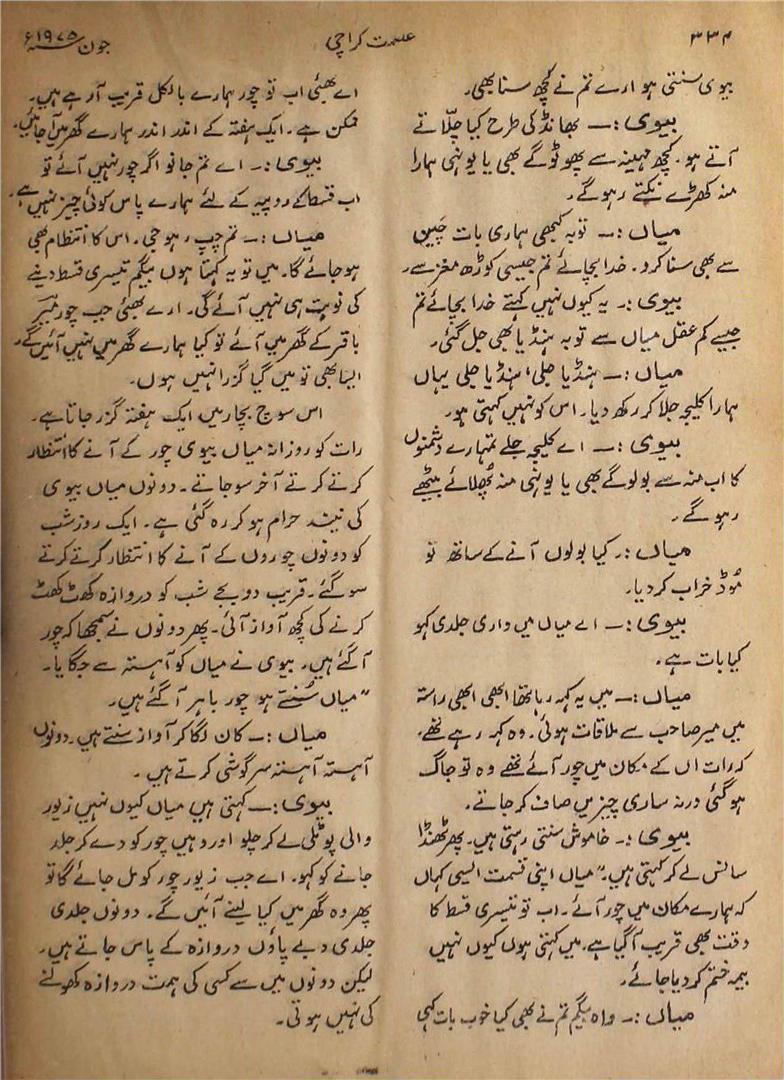 ۳۳۴
عصمت کراچی
جون ۱۹۷۵ء
بیوی سنتی ہو ارے تم نے کچھ سنا بھی۔
بیوی:۔ بھانڈ کی طرح کیا چلّاتے
آتے ہو۔ کچھ مہینہ سے پھوٹو گے بھی یا یونہی ہمارا
منہ کھڑے تکتے رہو گے۔
میاں:۔ توبہ کبھی ہماری بات چَین
سے بھی سنا کرو۔ خدا بچائے تم جیسی کوڑھ مغز سے۔
بیوی:۔ یہ کیوں نہیں کہتے خدا بچائے تم
جیسے کم عقل میاں سے توبہ ہنڈیا بھی جل گئی۔
میاں:۔ ہنڈیا جلی، ہنڈیا جلی یہاں
ہمارا کلیجہ جلا کر رکھ دیا۔ اس کو نہیں کہتی ہو۔
بیوی:۔ اے کلیجہ جلے تمہارے دشمنوں
کا اب منہ سے بولو گے بھی یا یونہی منہ پُھلائے بیٹھے
رہو گے۔
میاں:۔ کیا بولوں آنے کے ساتھ تو
مُوڈ خراب کر دیا۔
بیوی:۔ اے میاں میں واری جلدی کہو
کیا بات ہے۔
میاں:۔ میں یہ کہہ رہا تھا ابھی ابھی راستہ
میں میر صاحب سے ملاقات ہوئی۔ وہ کہہ رہے تھے۔
کہ رات ان کے مکان میں چور آئے تھے وہ تو جاگ
ہو گئی ورنہ ساری چیزیں صاف کر جاتے۔
بیوی:۔ خاموش سنتی رہتی ہیں۔ پھر ٹھنڈا
سانس لے کر کہتی ہیں۔ "میاں اپنی قسمت ایسی کہاں
کہ ہمارے مکان میں چور آئے۔ اب تو تیسری قسط کا
وقت بھی قریب آ گیا ہے۔ میں کہتی ہوں کیوں نہیں
بیمہ ختم کر دیا جائے۔
میاں:۔ واہ بیگم تم نے بھی کیا خوب بات کہی
اے بھئی اب تو چور ہمارے بالکل قریب آ رہے ہیں۔
ممکن ہے۔ ایک ہفتہ کے اندر اندر ہمارے گھر میں آ جائیں۔
بیوی:۔ اے تم جانو اگر چور نہیں آئے تو
اب قسط کے روپیہ کے لئے ہمارے پاس کوئی چیز نہیں ہے۔
میاں:۔ تم چپ رہو جی۔ اس کا انتظام بھی
ہو جائے گا۔ میں تو یہ کہتا ہوں بیگم تیسری قسط دینے
کی نوبت ہی نہیں آئے گی۔ ارے بھئی جب چور میر
باقر کے گھر میں آئے تو کیا ہمارے گھر میں نہیں آئیں گے۔
ایسا بھی تو میں گیا گزرا نہیں ہوں۔
اس سوچ بچار میں ایک ہفتہ گزر جاتا ہے۔
رات کو روزانہ میاں بیوی چور کے آنے کا انتظار
کرتے کرتے آخر سو جاتے۔ دونوں میاں بیوی
کی نیند حرام ہو کر رہ گئی ہے۔ ایک روز شب
کو دونوں چوروں کے آنے کا انتظار کرتے کرتے
سو گئے۔ قریب دو بجے شب کو دروازہ کھٹ کھٹ
کرنے کی کچھ آواز آئی۔ پھر دونوں نے سمجھا کہ چور
آ گئے ہیں۔ بیوی نے میاں کو آہستہ سے جگایا۔
"میاں سُنتے ہو چور باہر آ گئے ہیں۔
میاں:۔ کان لگا کر آواز سنتے ہیں۔ دونوں
آہستہ آہستہ سرگوشی کرتے ہیں۔
بیوی:۔ کہتی ہیں میاں کیوں نہیں زیور
والی پوٹلی لے کر چلو اور وہیں چور کو دے کر جلد
جانے کو کہو۔ اے جب زیور چور کو مل جائے گا تو
پھر وہ گھر میں کیا لینے آئیں گے۔ دونوں جلدی
جلدی دبے پاؤں دروازہ کے پاس جاتے ہیں۔
لیکن دونوں میں سے کسی کی ہمت دروازہ کھولنے
کی نہیں ہوتی۔